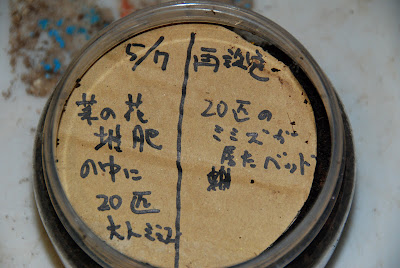 5/7
菜の花
堆肥
の中に
20匹
大ミミズ
再設定
20匹の
ミミズが
居たベッド